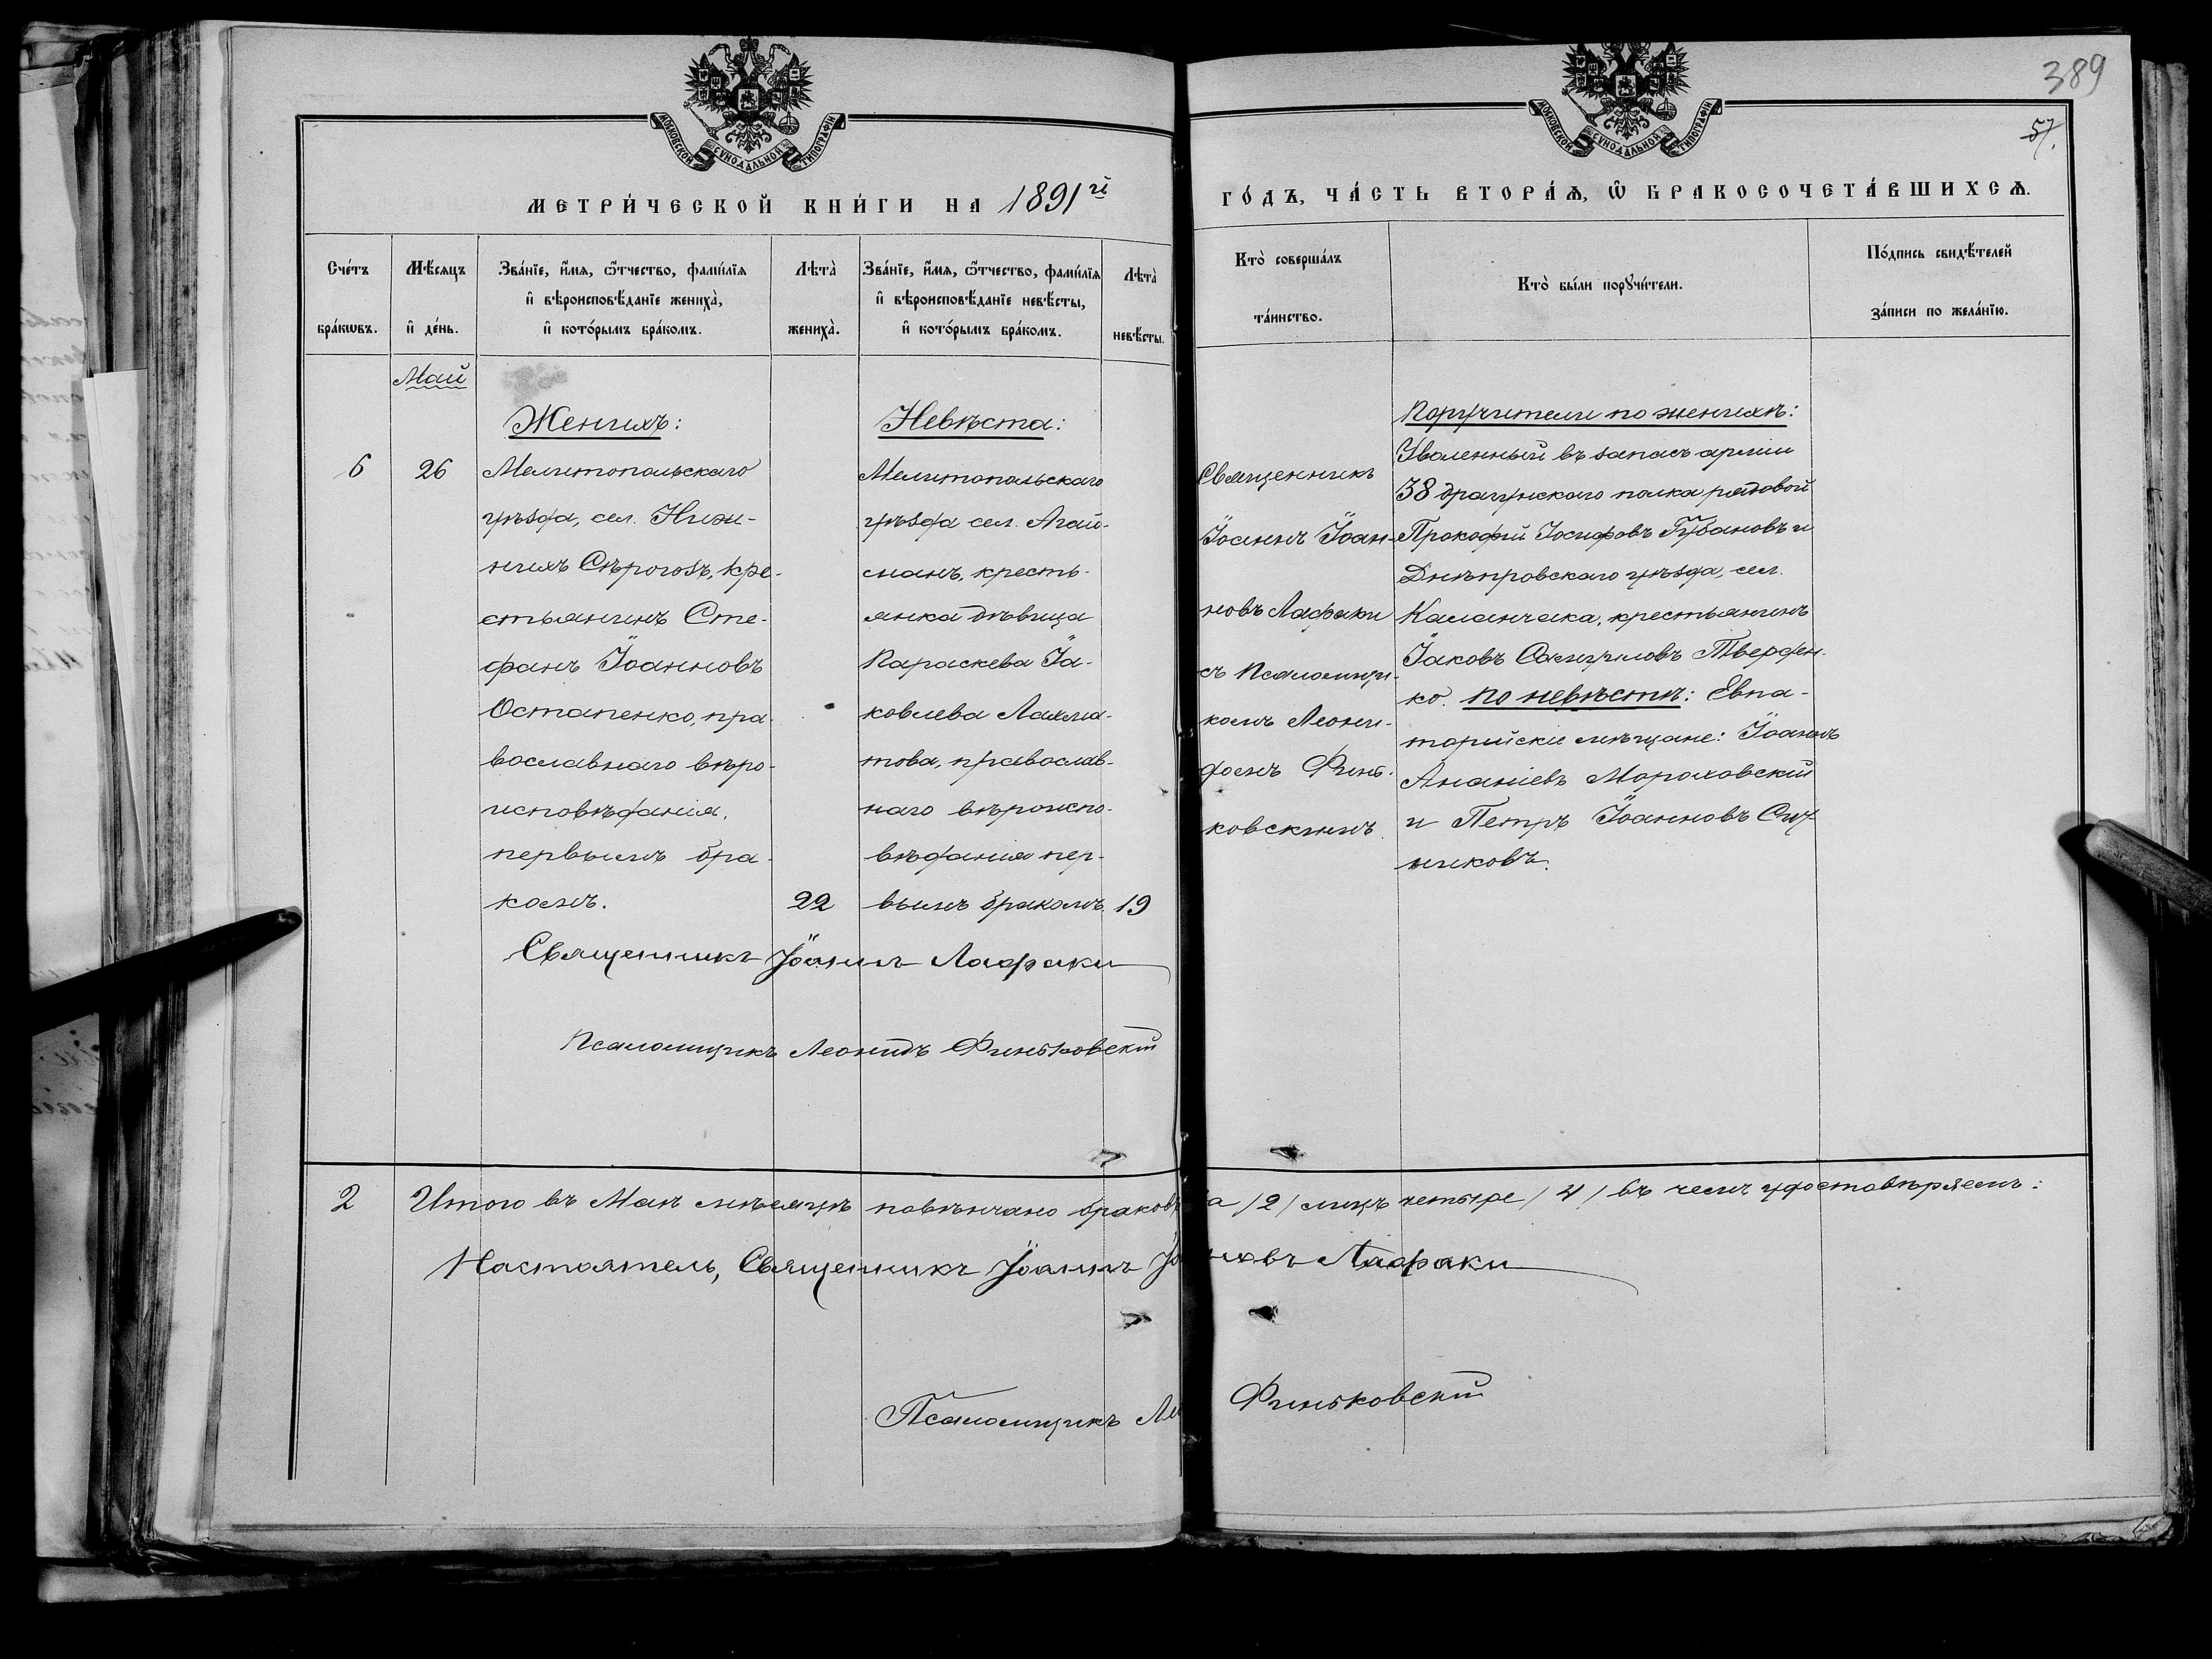 389
57.
МОСКОВСКОЙ СѴНОДАЛЬНОЙ ТИПОГРАФІИ
МОСКОВСКОЙ СѴНОДАЛЬНОЙ ТИПОГРАФІИ
МЕТРИ́ЧЕСКОЙ КНИ́ГИ НА 1891й
ГО́ДЪ, ЧА́СТЬ ВТОРА́Ѧ, Ѿ БРАКОСОЧЕТА́ВШИХСѦ.
Сче́тъ
бра́кѡвъ.
Мѣ́сяцъ
и҆ де́нь.
Зва́нїе, и҆́мя, ѻ҆́тчество, фами́лїя
и҆ вѣроисповѣ́данїе жениха̀,
и҆ кото́рымъ бра́комъ.
Лѣта̀
жениха̀.
Зва́нїе, и҆́мя, ѻ҆́тчество, фами́лїя
и҆ вѣроисповѣ́данїе невѣ́сты,
и҆ кото́рымъ бра́комъ.
Лѣта̀
невѣ́сты.
Кто̀ соверша́лъ
та́инство.
Кто̀ бы́ли порꙋчи́тели.
По́дпись свидѣ́телей
за́писи по жела́нїю.
Май
6
26
Женихъ:
Мелитопольскаго
уѣзда, сел. Ниж-
нихъ Сѣрогозъ, кре-
стьянинъ Сте-
фанъ Іоанновъ
Остапенко, пра-
вославнаго вѣро-
исповѣданія,
первымъ бра-
комъ.
22
Невѣста:
Мелитопольскаго
уѣзда сел. Агай-
манъ, кресть-
янка дѣвица
Параскева Іа-
ковлева Лахма-
това, православ-
наго вѣроиспо-
вѣданія пер-
вымъ бракомъ.
19
Священникъ
Іоаннъ Іоан-
новъ Лафаки
съ Псаломщи-
комъ Леони-
домъ Финь-
ковскимъ.
Поручители по женихѣ:
Уволенный въ запасъ арміи
38 драгунскаго полка рядовой
Прокофій Іосифовъ Губановъ и
Днѣпровскаго уѣзда, сел.
Каланчака, крестьянинъ
Іаковъ Самуиловъ Твердen-
ко. По невѣстѣ: Евпа-
торійскіе мѣщане: Іоаннъ
Ананіевъ Мороховскій
и Петръ Іоанновъ
никовъ.
Священникъ Іоаннъ Лафаки
Псаломщикъ Леонидъ Финьковскій
2
Итого въ Маѣ мѣсяцѣ повѣнчано браковъ
а /2/ лицъ четыре /4/ въ чемъ удостовѣряемъ:
Настоятель, Священникъ Іоаннъ Іо
новъ Лафаки
Псаломщикъ Ле
Финьковскій